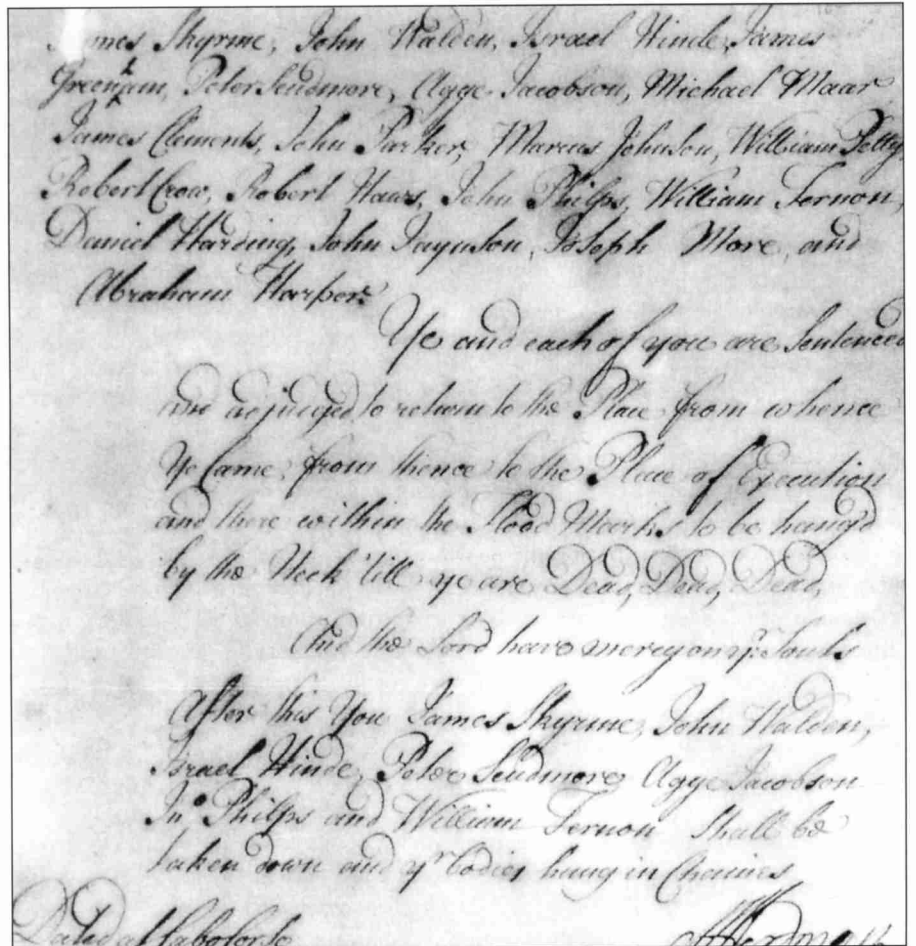 James Skyrme, John Walden, Israel Hinde, James
Greenham, Peter Scudmore, Agge Jacobson, Michael Maar
James Clements, John Parker, Marcus Johnson, William Petty,
Robert Crow, Robert Haws, John Philps, William Fernon,
Daniel Harding, John Jaynson, Joseph More, and
Abraham Harper.
Ye and each of you are Sentenced
and adjudged to return to the Place from whence
Ye Came, from thence to the Place of Execution
and there within the Flood Marks to be hang'd
by the Neck 'till ye are Dead, Dead, Dead,
And the Lord have mercy on yr. Souls
After this You James Skyrme, John Walden,
Israel Hinde, Peter Scudmore, Agge Jacobson
Jno. Philps and William Fernon Shall be
taken down and yr bodies hung in Chaines
Dated at Cabo Corso Herdman